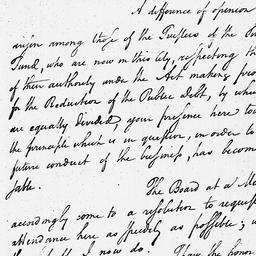 A difference of openion
arisen among those of the Trustees of the Sin
Fund, who are now in this City, respecting th
of their authority under the Act making prov
for the Reduction of the Public Debt, by whic
are equally divided, your presence here to
the principle which is in question, in order to
future conduct of the business, has becom
sable.
The Board at a Me
accordingly come to a resolution to reques
attendance here as speedily as possible; w
I now do. I have the honor